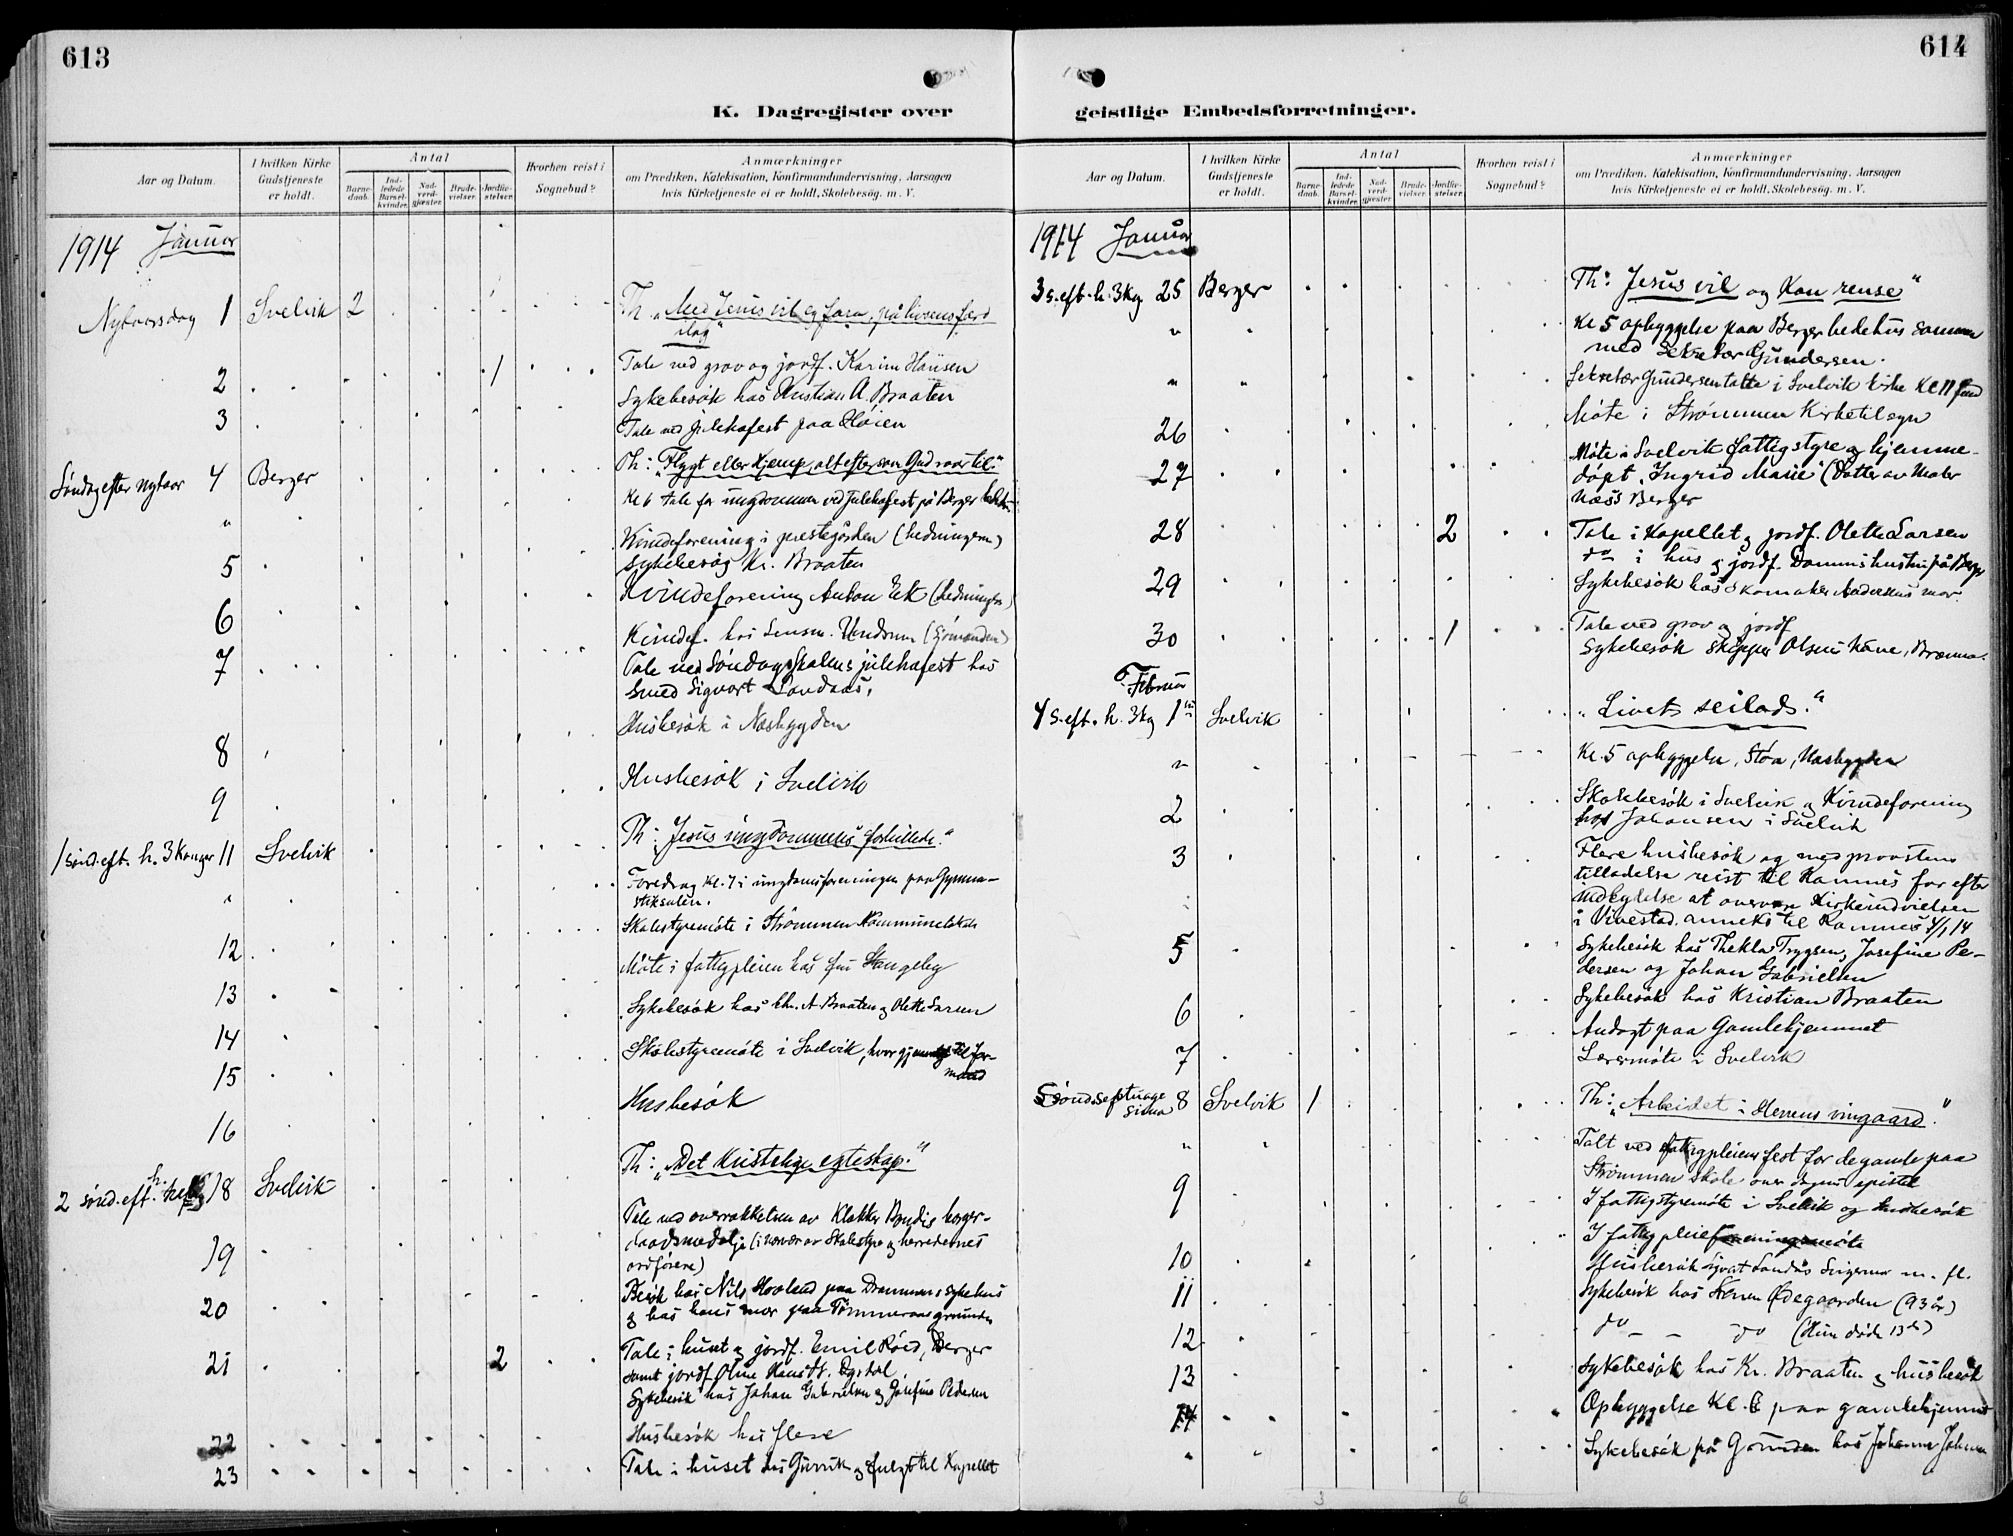 613
K. Dagregister over
Aar og Datum.
I hvilken Kirke Gudstjeneste er holdt.
Antal
Barnedaab.
Indledede Barselkvinder.
Nadverdgjæster.
Brudevielser.
Jordfæstelser.
Hvorhen reist i Sognebud?
Anmærkninger
om Prædiken, Katekisation, Konfirmandundervisning, Aarsagen
hvis Kirketjeneste ei er holdt, Skolebesøg. m. V.
1914 Januar
Nytaarsdag 1 Svelvik 2 Th. „Med Jesus vil eg fara, på livsens ferd
idag"
2 1 Tale ved grav og jordf. Karine Hansen
Sykebesøk hos Kristian A. Braaten
3 Tale ved julehafest paa Høien
Søndag efter nytaar 4 Berger Th: „Flygt eller Kjemp, alt eftersom Gud raar til."
" Kl 6 tale for ungdommen ved julehafest på Berger
Kvindeforening i prestegården (hedningerne)
5 Sykebesøg Kr. Braaten
Kvindeforening Anton Ek
6 Kvindef. hos Lensm. (Sjømanden)
7 Tale ved Søndagsskolens julehafest hos
Smed Sigvart Landaas,
Husbesøk i Nesbygden
8
Husbesøk i Svelvik
9
1 sønd. eft. h. 3 Konger 11 Svelvik Th: „Jesus ungdommens forbillede."
" Foredrag kl. 7 i ungdomsforeningen paa Gymna-
stiksalen.
12 Skolestyremøte i Strømmen Kommunelokale
13 Møte i fattigpleien hos
14 Sykebesøk hos Chr. A Braaten og Olette Larsen
15 Skolestyremøte i Svelvik, hvor til for-
mand
16 Husbesøk
2 sønd. eft. h. 18 Svelvik Th: „Det Kristelige egteskap."
19 Tale ved overrækkelsen av Klokker borger-
daadsmedalje (i nærvær av Skolestyre og herredernes
ordførere)
20 Besøk hos Nils Hovland paa Drammens sykehus
og hos hans mor paa Tømmeraasgrunden
21 2 Tale i huset og jordf. Emil Røed, Berger
samt jordf Oline
Sykebesøk hos Johan Gabrielsen og Josefine Pedersen
22 Husbesøk hos flere
23 Tale i huset hos og fulgt til Kapellet
614
geistlige Embedsforretninger.
Aar og Datum.
I hvilken Kirke Gudstjeneste er holdt.
Antal
Barnedaab.
Indledede Barselkvinder.
Nadverdgjæster.
Brudevielser.
Jordfæstelser.
Hvorhen reist i Sognebud?
Anmærkninger
om Prædiken, Katekisation, Konfirmandundervisning, Aarsagen
hvis Kirketjeneste ei er holdt, Skolebesøg. m. V.
1914 Januar
3 s. eft. h. 3 kg 25 Berger Th: „Jesus vil og Kan rense"
" Kl 5 opbyggelse paa Berger bedehus sammen
med Sekretær Gundersen.
" Sekretær Gundersen talte i Svelvik kirke Kl 11
26 Møte i Strømmen Kirketilsyn
27 Møte i Svelvik fattigstyre og hjemme-
døpt „Ingrid Marie" (Datter av Maler
Næss Berger
28 2 Tale i Kapellet og jordf. Olette Larsen
do i hus og jordf. på Berger
29 Sykebesøk hos Skomaker Andersens mor.
30 1 Tale ved grav og jordf
Sykebesøk skipper Olsens
Februar
4 s. eft. h. 3 kg 1ste Svelvik „Livets seilads."
" Kl. 5 opbyggelse, Støa, Nesbygden
2 Skolebesøk i Svelvik og Kvindeforening
hos Johansen i Svelvik
3 Flere husbesøk og med provstens
tilladelse reist til Ramnes for efter
indbydelse at overvære Kirkeindvielsen
i Vivestad anneks til Ramnes 4/ 14
5 Sykebesøk hos Thekla Trygsen, Josefine Pe-
dersen og Johan Gabrielsen
6 Sykebesøk hos Kristian Braaten
Andagt paa Gamlehjemmet
7 Lærermøte i Svelvik
Sønds. 8 Svelvik 1 Th: „Arbeidet i Herrens vingaard."
" Talt ved fattigpleiens fest for de gamle paa
Strømmen skole over dagens epistel
9 I fattigstyremøte i Svelvik og husbesøk
10 I
Husbesøk Sigvart Landaas m. fl.
11 Sykebesøk hos Ødegaarden (93 år)
12 do - - do (Hun døde 13de)
13 Sykebesøk hos Kr. Braaten og husbesøk
14 Opbyggelse Kl. 6 paa gamlehjemmet
" Sykebesøk på Grunden hos Johanne
3 6